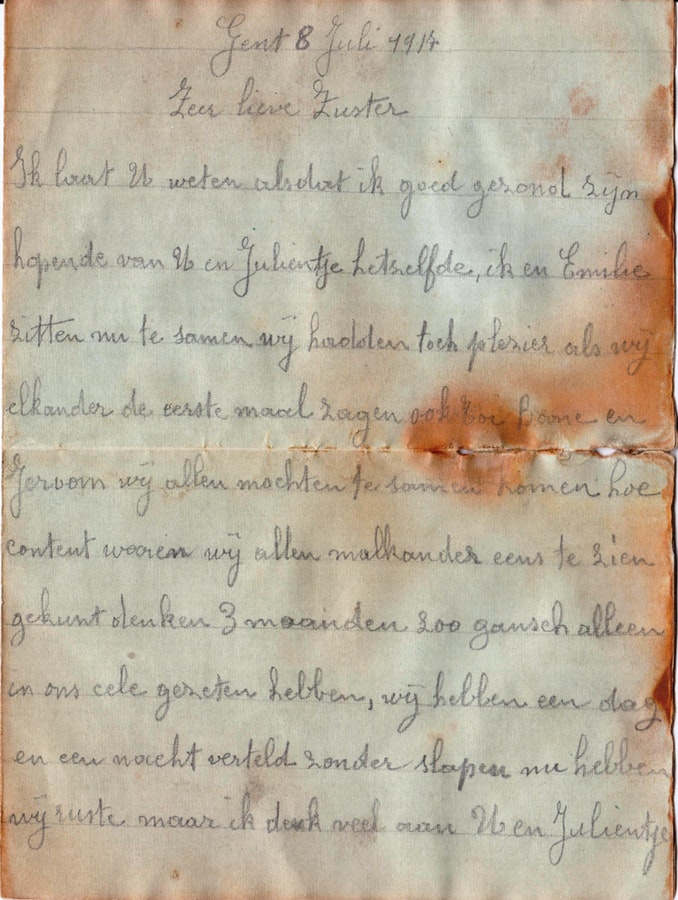 Gent 8 Juli 1914
Zeer lieve Zuster
Ik laat U weten alsdat ik goed gezond zijn
hopende van U en Julientje hetzelfde, ik en Emilie
zitten nu te samen wij hadden toch plezier als wij
elkander de eerste maal zagen ook Boone en
Jeroom wij allen mochten te samen komen hoe
content waaren wij allen malkander eens te zien
gekunt denken 3 maanden zoo gansch alleen
in ons cele gezeten hebben, wij hebben een dag
en een nacht verteld zonder slapen nu hebben
wij ruste maar ik denk veel aan U en Julientje